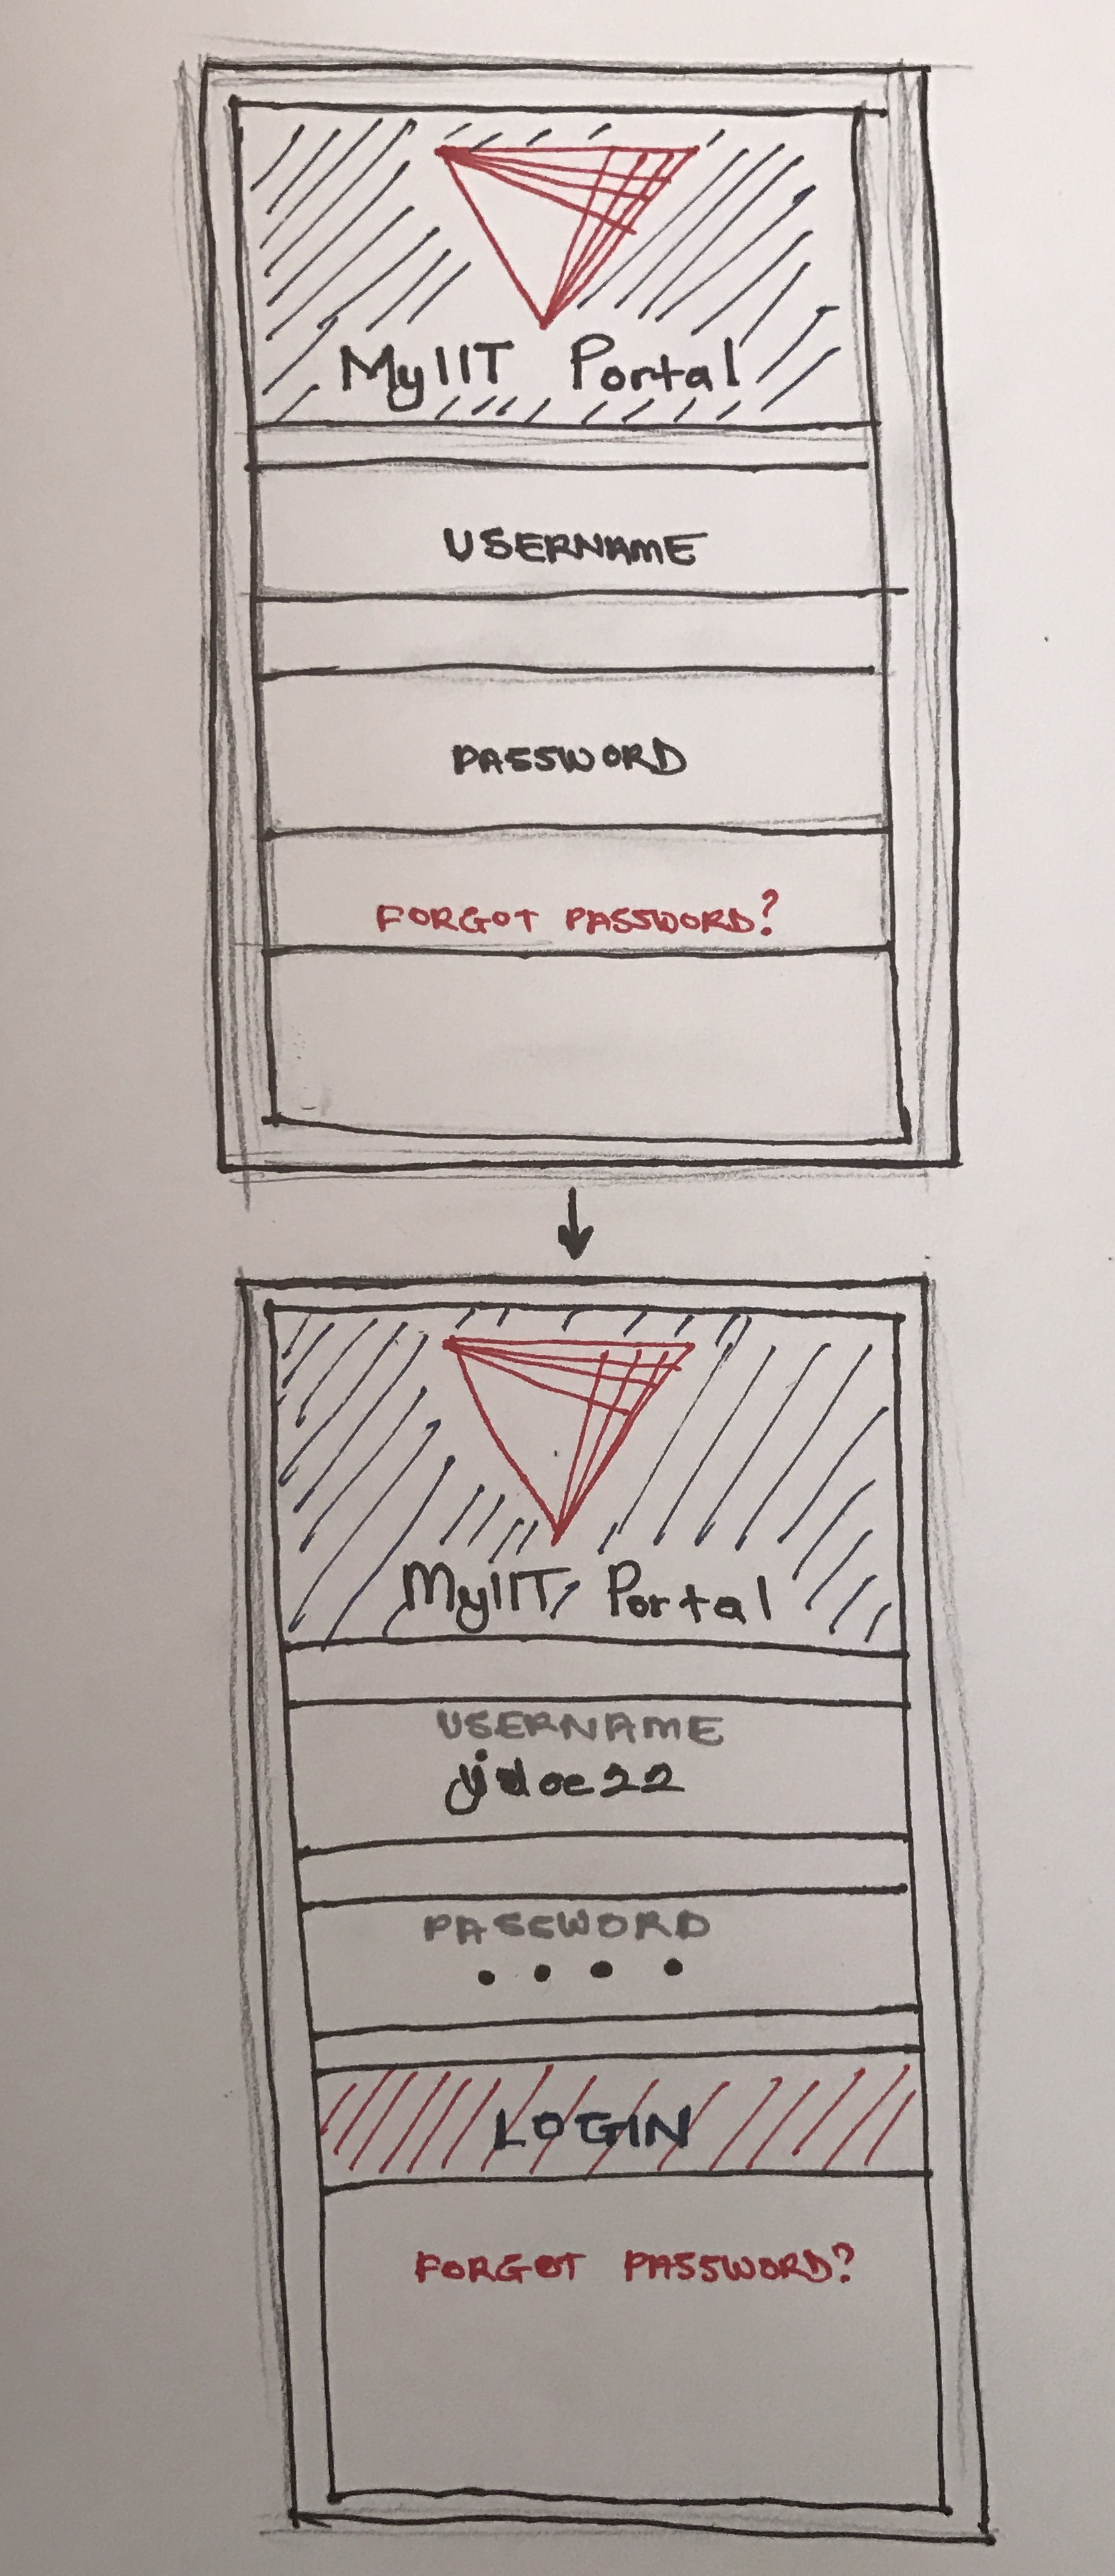 MyIIT Portal
USERNAME
PASSWORD
FORGOT PASSWORD?
MyIIT Portal
USERNAME
jdoe22
PASSWORD
LOGIN
FORGOT PASSWORD?